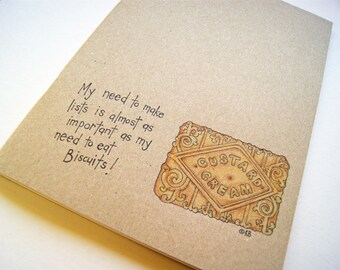 My need to make
lists is almost as
important as my
need to eat
Biscuits!
CUSTARD
CREAM